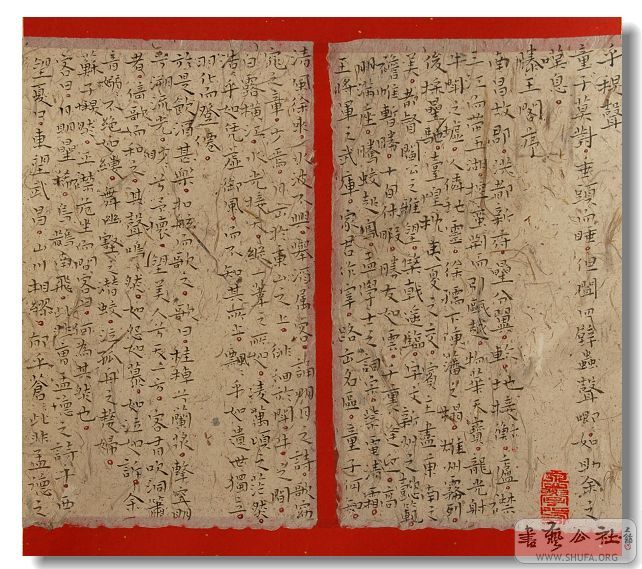 乎秋聲
童子莫對垂頭而睡但聞四壁蟲聲唧唧如助余之
嘆息
滕王閣序
南昌故郡洪都新府星分翼軫地接衡廬襟
三江而帶五湖控蠻荊而引甌越物華天寶龍光射
牛斗之墟人傑地靈徐孺下陳蕃之榻雄州霧列
俊採星馳臺隍枕夷夏之交賓主盡東南之
美都督閻公之雅望棨戟遙臨宇文新州之懿範
襜帷暫駐十旬休暇勝友如雲千里逢迎高
朋滿座騰蛟起鳳孟學士之詞宗紫電清霜
王將軍之武庫家君作宰路出名區童子何知
清風徐來水波不興舉酒屬客誦明月之詩歌窈
窕之章少焉月出於東山之上徘徊於斗牛之間
白露橫江水光接天縱一葦之所如凌萬頃之茫然
浩乎如馮虛御風而不知其所止飄乎如遺世獨立
羽化而登僊
於是飲酒甚樂扣舷而歌之歌曰桂棹兮蘭槳擊空明
兮溯流光渺渺兮予懷望美人兮天一方客有吹洞簫
者倚歌而和之其聲嗚嗚然如怨如慕如泣如訴余
音嫋嫋不絕如縷舞幽壑之潛蛟泣孤舟之嫠婦
蘇子愀然正襟危坐而問客曰何為其然也
客曰月明星稀烏鵲南飛此非曹孟德之詩乎西
望夏口東望武昌山川相繆鬱乎蒼蒼此非孟德之
書藝公社
WWW.SHUFA.ORG